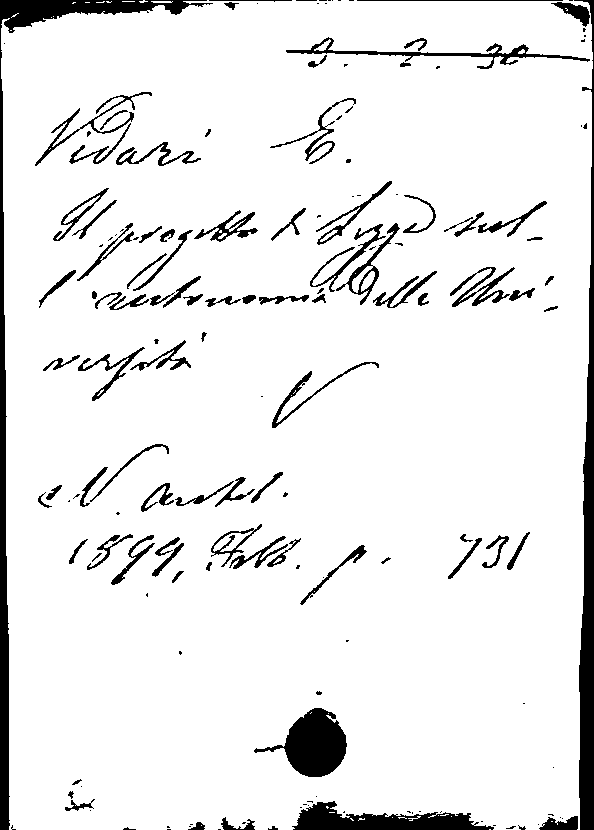 3. 2. 30
Vidari E.
Il progetto di Legge sul-
l'autonomia delle Uni-
versità
V
N. Antol.
1899, Febb. p. 731